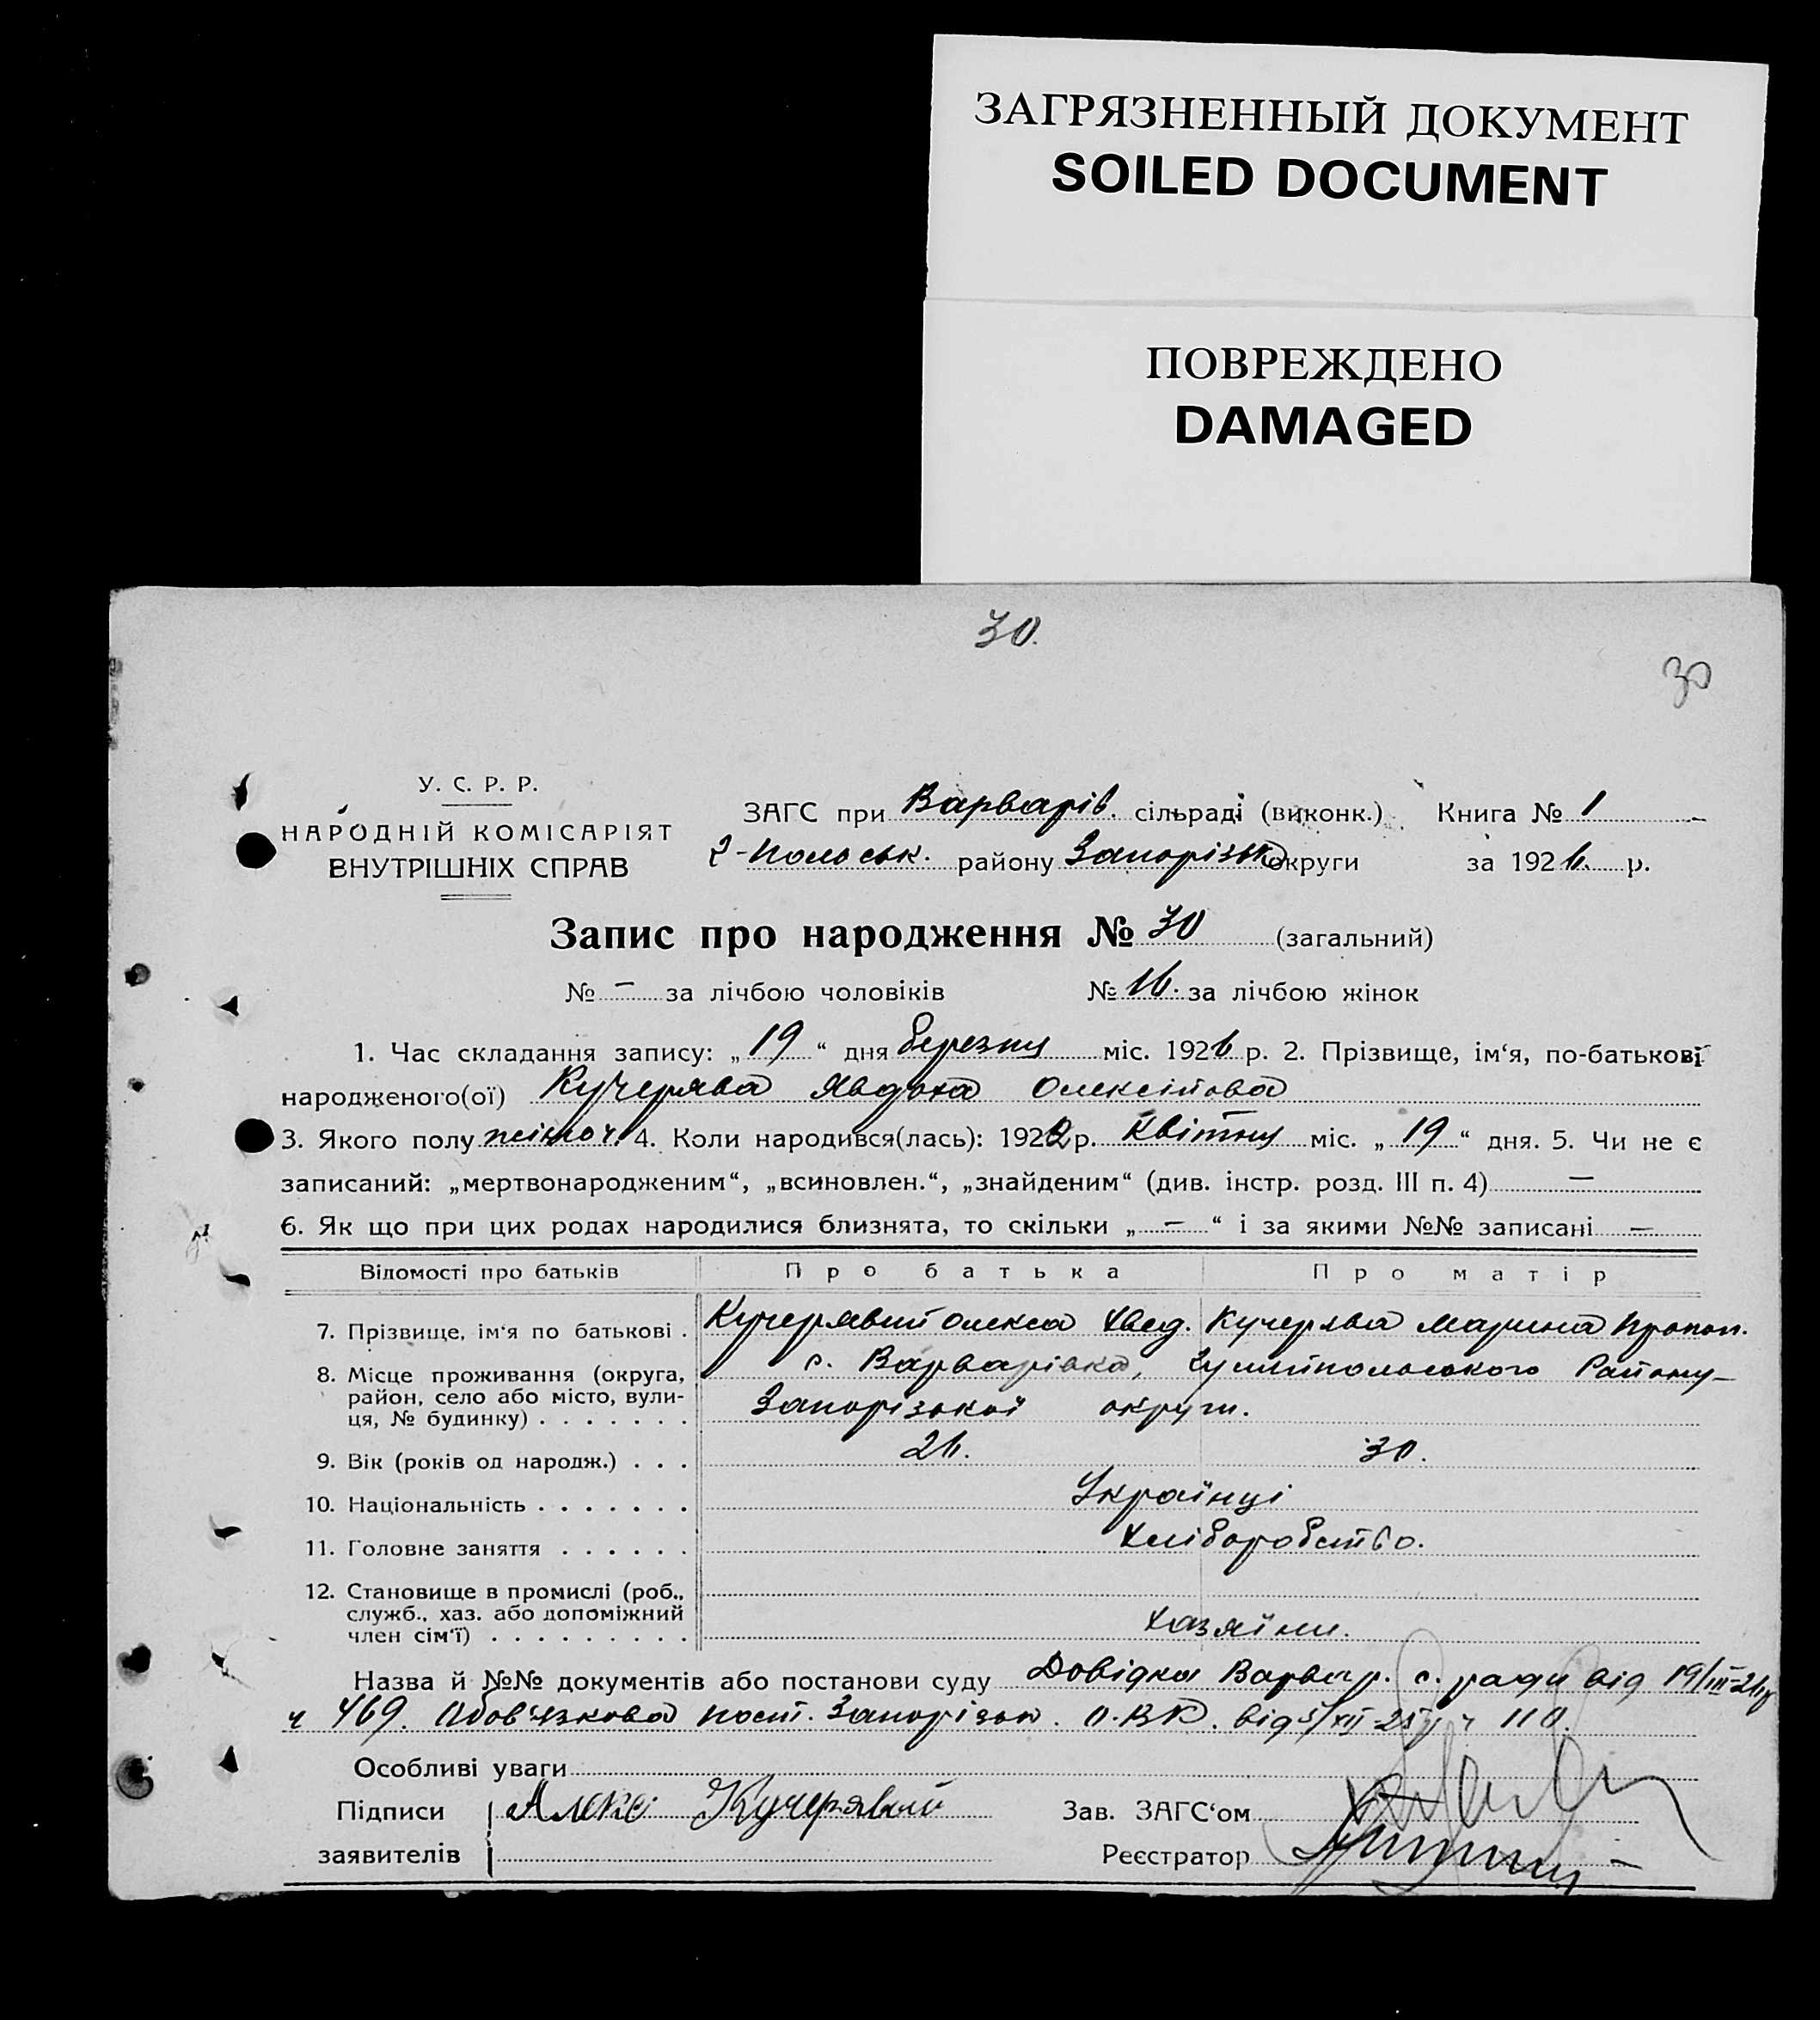 ЗАГРЯЗНЕННЫЙ ДОКУМЕНТ
SOILED DOCUMENT
ПОВРЕЖДЕНО
DAMAGED
30.
30
У. С. Р. Р.
НАРОДНІЙ КОМІСАРІЯТ
ВНУТРІШНІХ СПРАВ
ЗАГС при Варварів. сільраді (виконк.) Книга № 1
Г-Польськ. району Запорізьк округи за 1926 р.
Запис про народження № 30 (загальний)
№ — за лічбою чоловіків № 16. за лічбою жінок
1. Час складання запису: „19“ дня березня міс. 1926 р. 2. Прізвище, ім‘я, по-батькові
народженого(ої) Кучерява Явдоха Олексійова
3. Якого полу жіноч. 4. Коли народився(лась): 1922 р. Квітня міс. „19“ дня. 5. Чи не є
записаний: „мертвонародженим“, „всиновлен.“, „знайденим“ (див. інстр. розд. III п. 4) —
6. Як що при цих родах народилися близнята, то скільки „—“ і за якими №№ записані —
Відомості про батьків Про батька Про матір
7. Прізвище, ім‘я по батькові . Кучерявий Олекса Хвед. Кучерява Марина Прокоп.
8. Місце проживання (округа, с. Варварівка, Гуляйпольского Району
район, село або місто, вули-
ця, № будинку) . . . . . . . Запорізької округи.
9. Вік (років од народж.) . . . 26. 30.
10. Національність . . . . . . . Українці
11. Головне заняття . . . . . . Хліборобство.
12. Становище в промислі (роб.,
служб., хаз. або допоміжний
член сім‘ї) . . . . . . . . . Хазяїни.
Назва й №№ документів або постанови суду Довідка Варвар. с. ради від 19/III-26р
ч 469. Обов'язкова пост. Запорізьк. О.В.К. від 5/XII-25р ч 110.
Особливі уваги
Підписи Алекс Кучерявий Зав. ЗАГС‘ом
заявителів Реєстратор